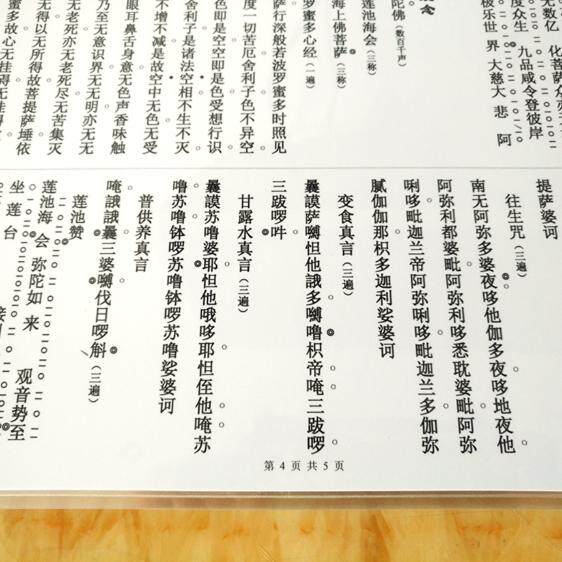 念
陀佛（数百千声）
莲池海会（三称）
海上佛菩萨（三称）
罗蜜多心经（一遍）
萨行深般若波罗蜜多时照见
度一切苦厄舍利子色不异空
色即是空空即是色受想行识
舍利子是诸法空相不生不灭
不增不减是故空中无色无受
眼耳鼻舌身意无色声香味触
乃至无意识界无无明亦无无
无老死亦无老死尽无苦集灭
无得以无所得故菩提萨埵依
蜜多故心无挂碍无挂碍
无数亿 化菩萨众亦
度众生 九品咸令登彼岸
极乐世界 大慈大悲 阿
提萨婆诃
往生咒（三遍）
南无阿弥多婆夜哆他伽多夜哆地夜他
阿弥利都婆毗阿弥利哆悉耽婆毗阿弥
唎哆毗迦兰帝阿弥唎哆毗迦兰多伽弥
腻伽伽那枳多迦利娑婆诃
变食真言（三遍）
曩謨萨嚩怛他誐多嚩噜枳帝唵三跋啰
三跋啰吽
甘露水真言（三遍）
曩謨苏噜婆耶怛他哦哆耶怛侄他唵苏
噜苏噜钵啰苏噜钵啰苏噜娑婆诃
普供养真言
唵誐誐曩三婆嚩伐日啰斛（三遍）
莲池赞
莲池海会 弥陀如来 观音势至
坐莲台
第 4 页 共 5 页